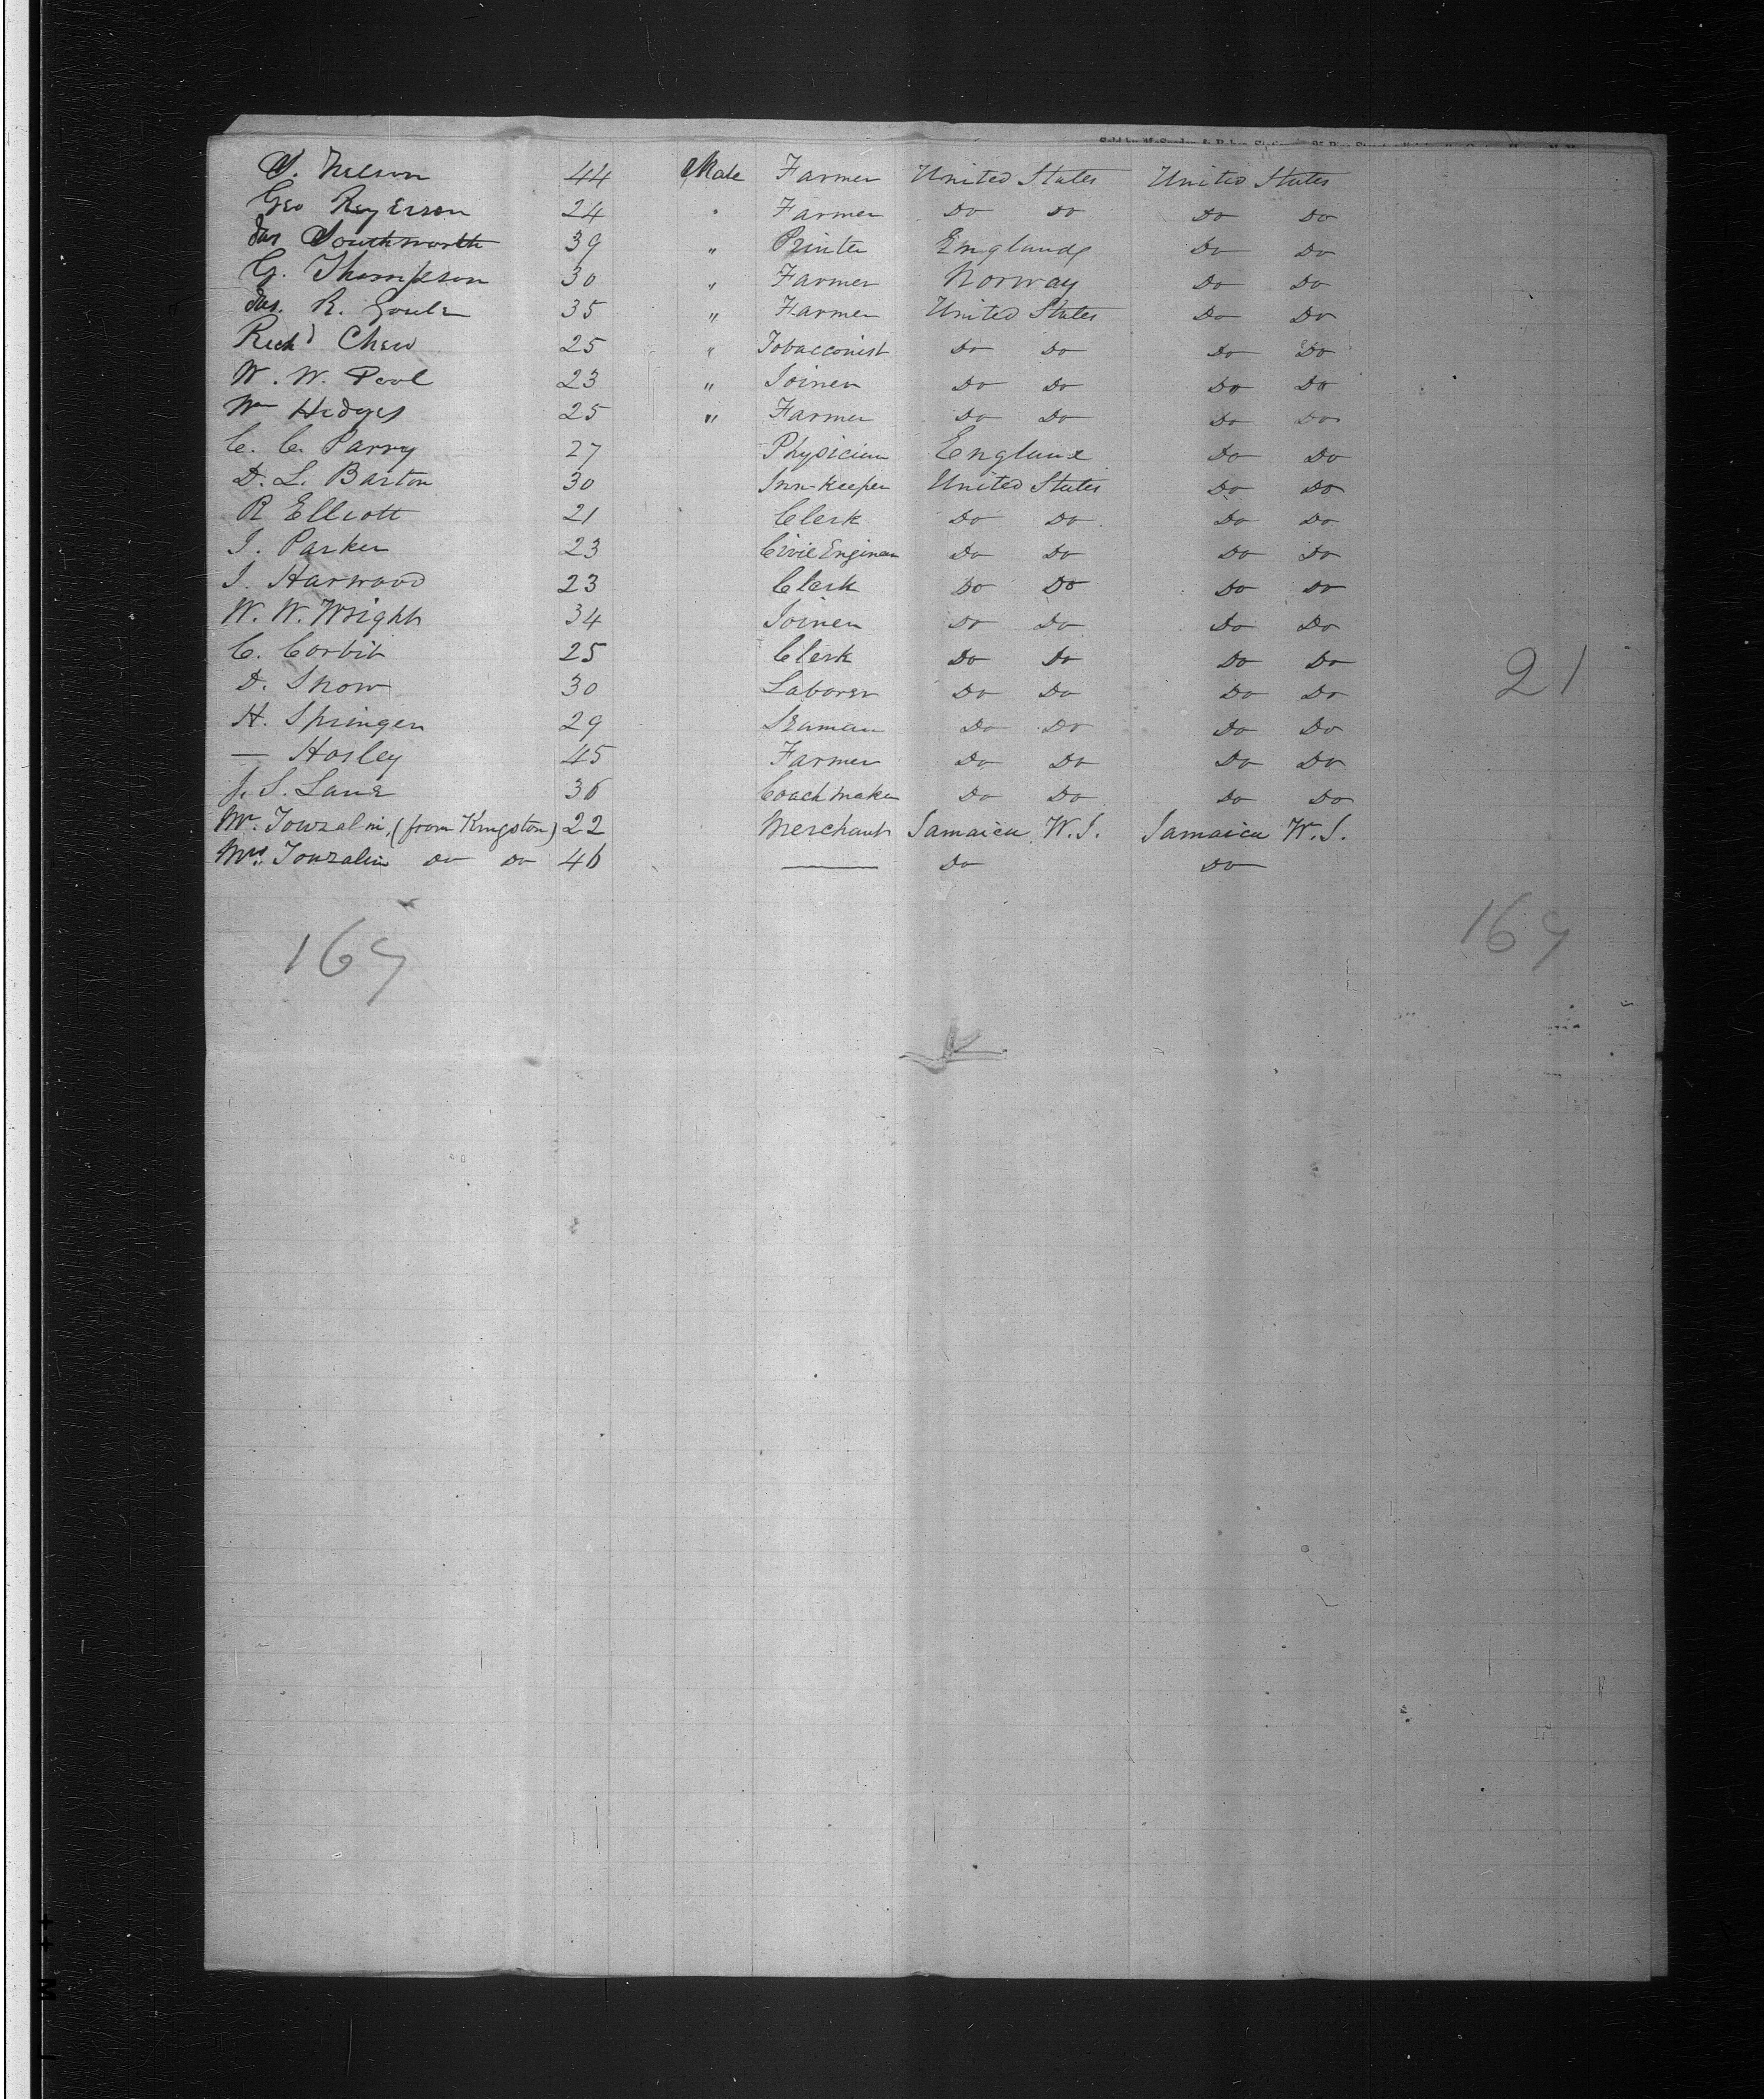 S. Nelson 44 Male Farmer United States United States
Geo Reyerson 24 " Farmer Do Do Do Do
Jas Southworth 39 " Printer England Do Do
G. Thompson 30 " Farmer Norway Do Do
Jas. R. Goule 35 " Farmer United States Do Do
Rich'd Chew 25 " Tobacconist Do Do Do Do
W. W. Pool 23 " Joiner Do Do Do Do
Wm Hedges 25 " Farmer Do Do Do Do
C. C. Parry 27 Physician England Do Do
D. L. Barton 30 Inn-Keeper United States Do Do
R Elliott 21 Clerk Do Do Do Do
J. Parker 23 Civil Engineer Do Do Do Do
J. Harwood 23 Clerk Do Do Do Do
W. W. Wright 34 Joiner Do Do Do Do
C. Corbit 25 Clerk Do Do Do Do
D. Snow 30 Laborer Do Do Do Do
21
H. Springer 29 Seaman Do Do Do Do
— Hosley 45 Farmer Do Do Do Do
J. S. Lane 36 Coach maker Do Do Do Do
Mr. Touzalin, (from Kingston) 22 Merchant Jamaica W.I. Jamaica W.I.
Mrs. Touzalin Do Do 46 — Do Do
169 169